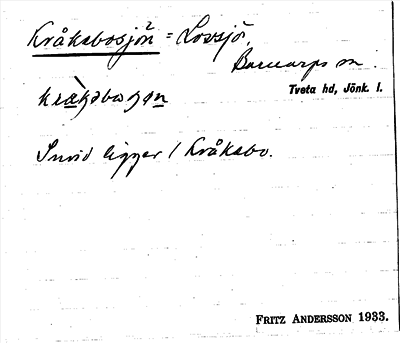 Kråkabosjön = Lovsjö,
Barnarps sn.
Tveta hd, Jönk. l.
Invid ligger / Kråkabo.
FRITZ ANDERSSON 1933.